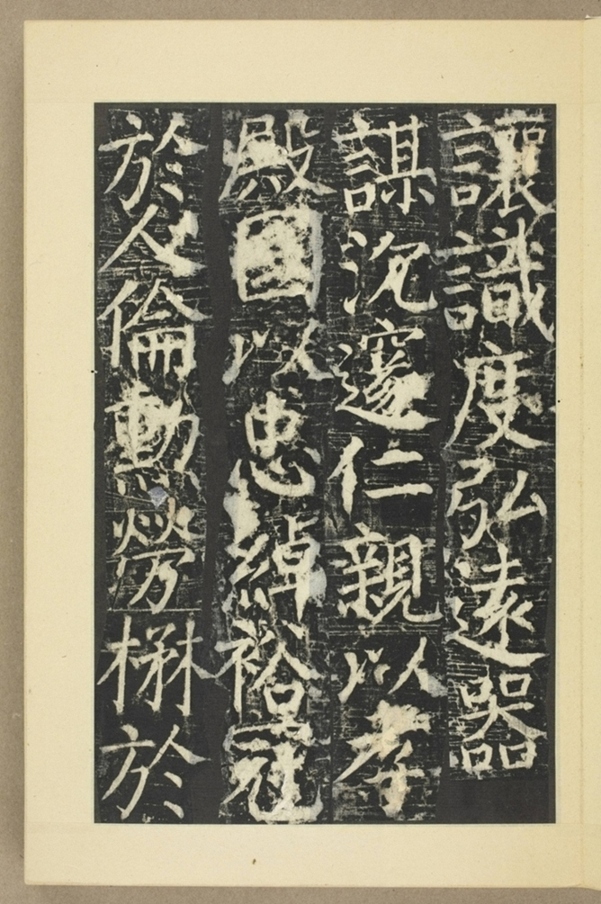 讓識度弘遠器
謀沉邃仁親以孝
殿國以忠綽裕冠
於人倫勲勞楙於